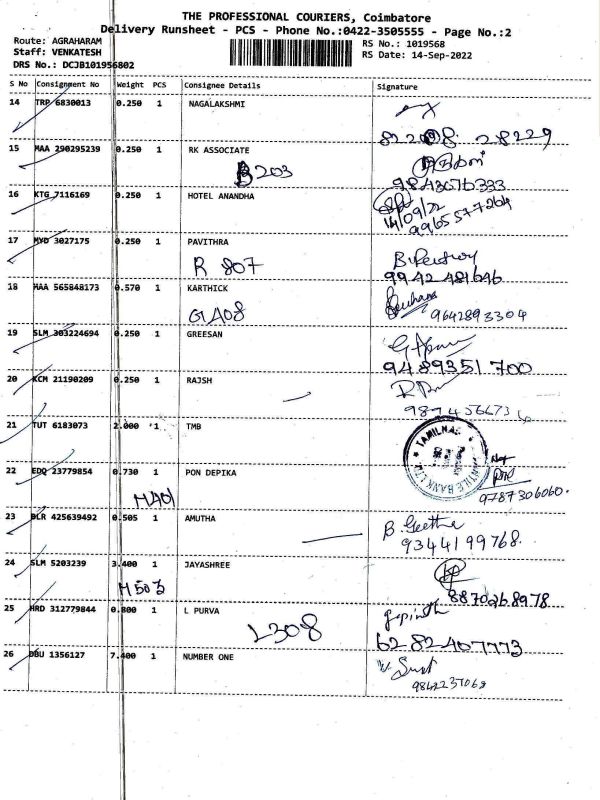 THE PROFESSIONAL COURIERS, Coimbatore
Delivery Runsheet - PCS - Phone No.:0422-3505555 - Page No.:2
Route: AGRAHARAM
RS No.: 1019568
Staff: VENKATESH
RS Date: 14-Sep-2022
DRS No.: DCJB101956802
S No Consignment No Weight PCS Consignee Details Signature
14 TRP 6830013 0.250 1 NAGALAKSHMI
82208 28229
15 MAA 290295239 0.250 1 RK ASSOCIATE
B 203
9843076333
16 KTG 7116169 0.250 1 HOTEL ANANDHA
14/09/22
9965577264
17 MYD 3027175 0.250 1 PAVITHRA
R 807
9942481646
18 MAA 565848173 0.570 1 KARTHICK
GA08
9642893304
19 SLM 303224694 0.250 1 GREESAN
9489351700
20 KCM 21190209 0.250 1 RAJSH
21 TUT 6183073 2.000 1 TMB
22 EDQ 23779854 0.730 1 PON DEPIKA
MA01
9787306060.
23 BLR 425639492 0.505 1 AMUTHA
B. Geetha
9344199768.
24 SLM 5203239 3.400 1 JAYASHREE
H503
8870268978
25 HRD 312779844 0.800 1 L PURVA
L308
gopinath
6282407773
26 DBU 1356127 7.400 1 NUMBER ONE